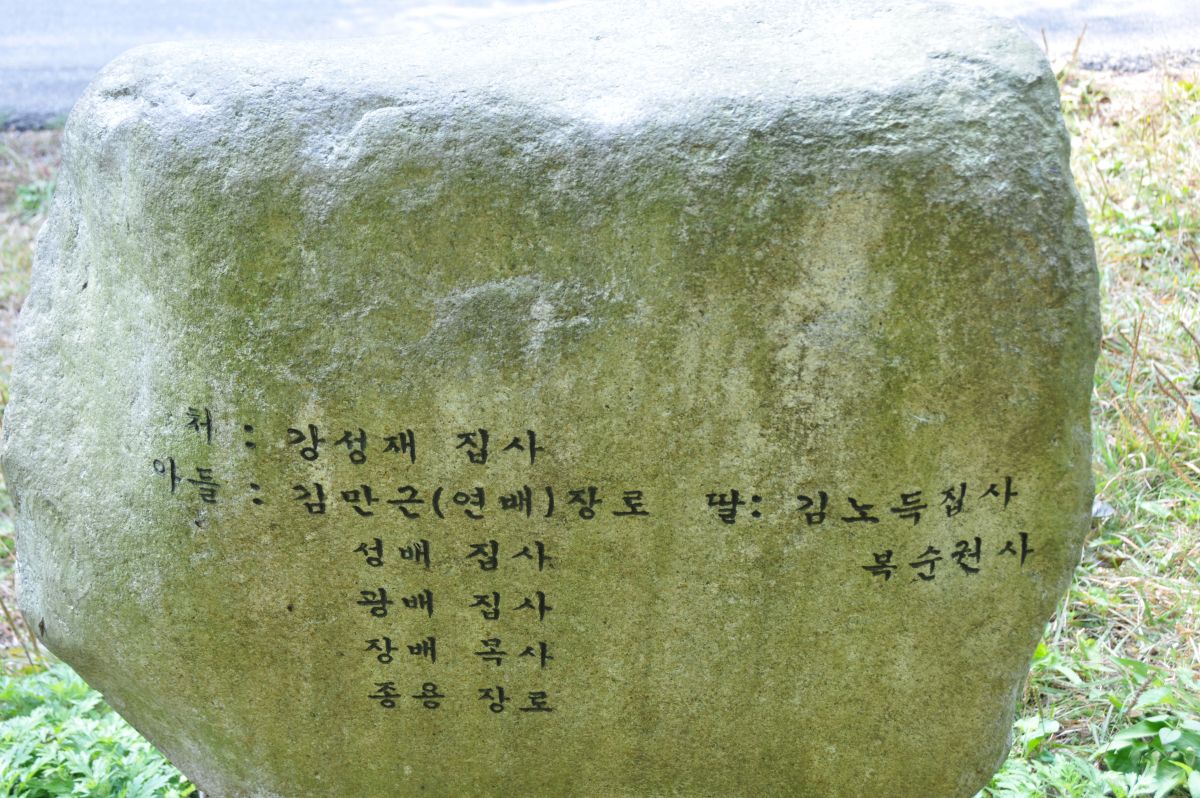 처 : 강성재 집사
아들 : 김만근(연배)장로 딸: 김노득집사
성배 집사 복순권사
광배 집사
장배 목사
종용 장로